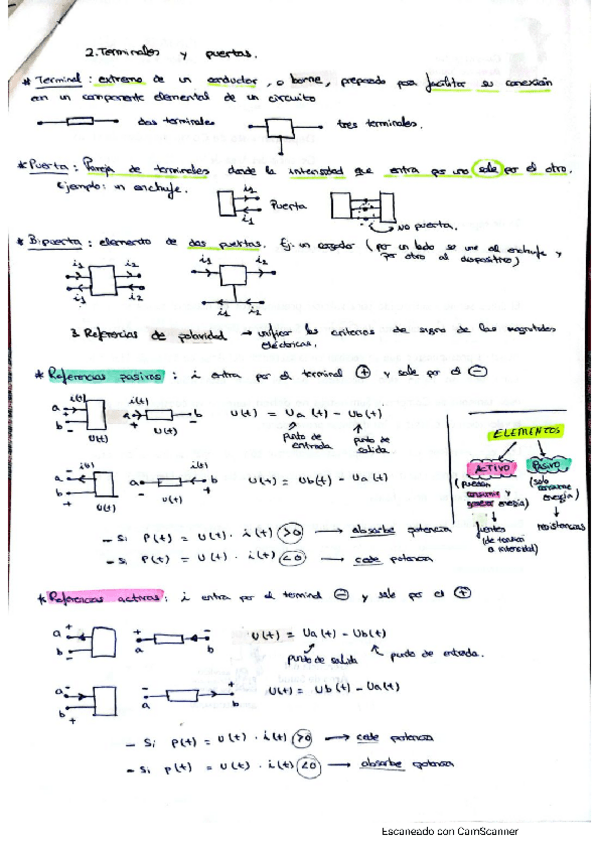 2. Terminales y puertas.
* Terminal : extremo de un conductor, o borne, preparado para facilitar su conexión
en un componente elemental de un circuito
dos terminales
tres terminales.
* Puerta : Pareja de terminales donde la intensidad que entra por uno sale por el otro.
Ejemplo: un enchufe.
i1
i1
Puerta
No puerta.
* Bipuerta : elemento de dos puertas. Ej: un cargador (por un lado se une al enchufe y
por otro al dispositivo)
i1 i2
i1 i2
i1 i2
i1 i2
3. Referencias de polaridad → unificar los criterios de signo de las magnitudes
eléctricas.
* Referencias pasivas : i entra por el terminal + y sale por el -
i(t) i(t)
a + a + - b
b -
U(t) U(t)
U(t) = Ua (t) - Ub (t)
punto de entrada
punto de salida
i(t) i(t)
a - a - + b
b +
U(t) U(t)
U(t) = Ub(t) - Ua (t)
ELEMENTOS
ACTIVO
PASIVO
(pueden consumir y generar energía)
(solo consume energía)
fuentes
(de tensión o intensidad)
resistencias
- Si P(t) = U(t) · i(t) >0 → absorbe potencia
- Si P(t) = U(t) · i(t) <0 → cede potencia
* Referencias activas : i entra por el terminal - y sale por el +
a + + -
b - a b
U(t) = Ua (t) - Ub(t)
punto de salida
punto de entrada.
a - - +
b + a b
U(t) = Ub (t) - Ua(t)
- Si p(t) = U(t) · i(t) >0 → cede potencia
- Si p(t) = U(t) · i(t) <0 → absorbe potencia
Escaneado con CamScanner